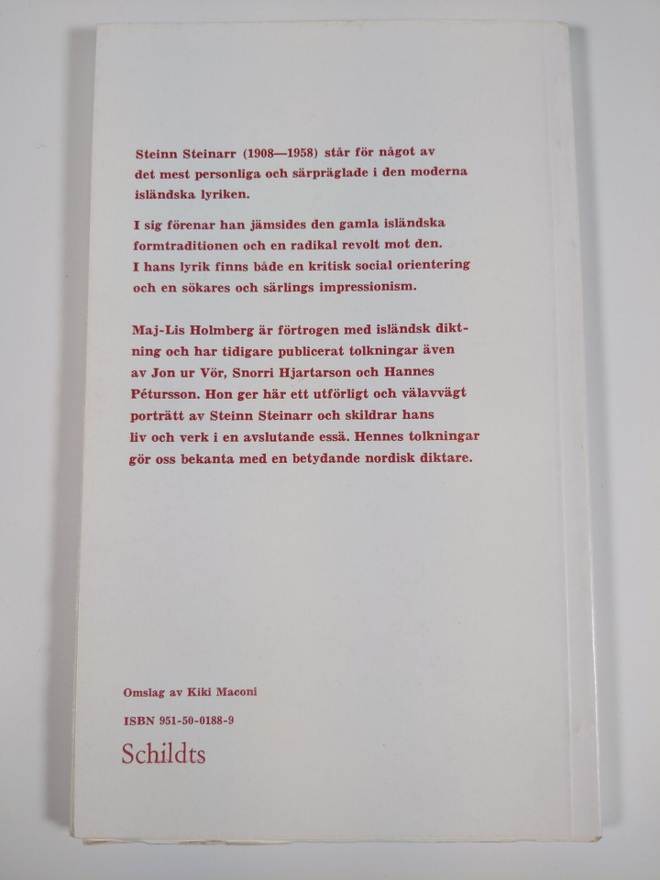 Steinn Steinarr (1908—1958) står för något av
det mest personliga och särpräglade i den moderna
isländska lyriken.
I sig förenar han jämsides den gamla isländska
formtraditionen och en radikal revolt mot den.
I hans lyrik finns både en kritisk social orientering
och en sökares och särlings impressionism.
Maj-Lis Holmberg är förtrogen med isländsk dikt-
ning och har tidigare publicerat tolkningar även
av Jon ur Vör, Snorri Hjartarson och Hannes
Pétursson. Hon ger här ett utförligt och välavvägt
porträtt av Steinn Steinarr och skildrar hans
liv och verk i en avslutande essä. Hennes tolkningar
gör oss bekanta med en betydande nordisk diktare.
Omslag av Kiki Maconi
ISBN 951-50-0188-9
Schildts